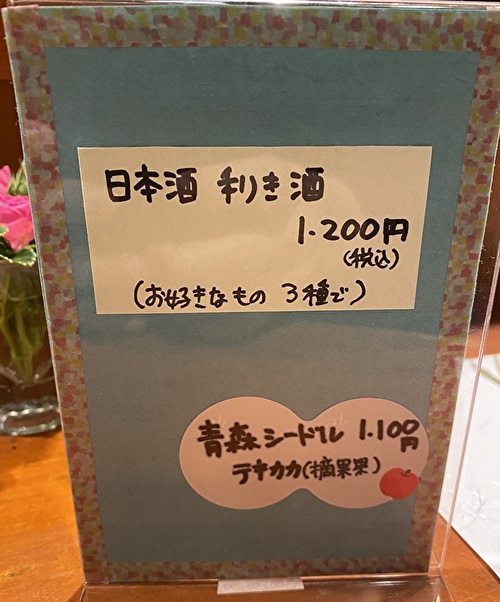 日本酒 利き酒
1.200円
(税込)
(お好きなもの 3種で)
青森シードル 1.100円
テキカカ(摘果果)